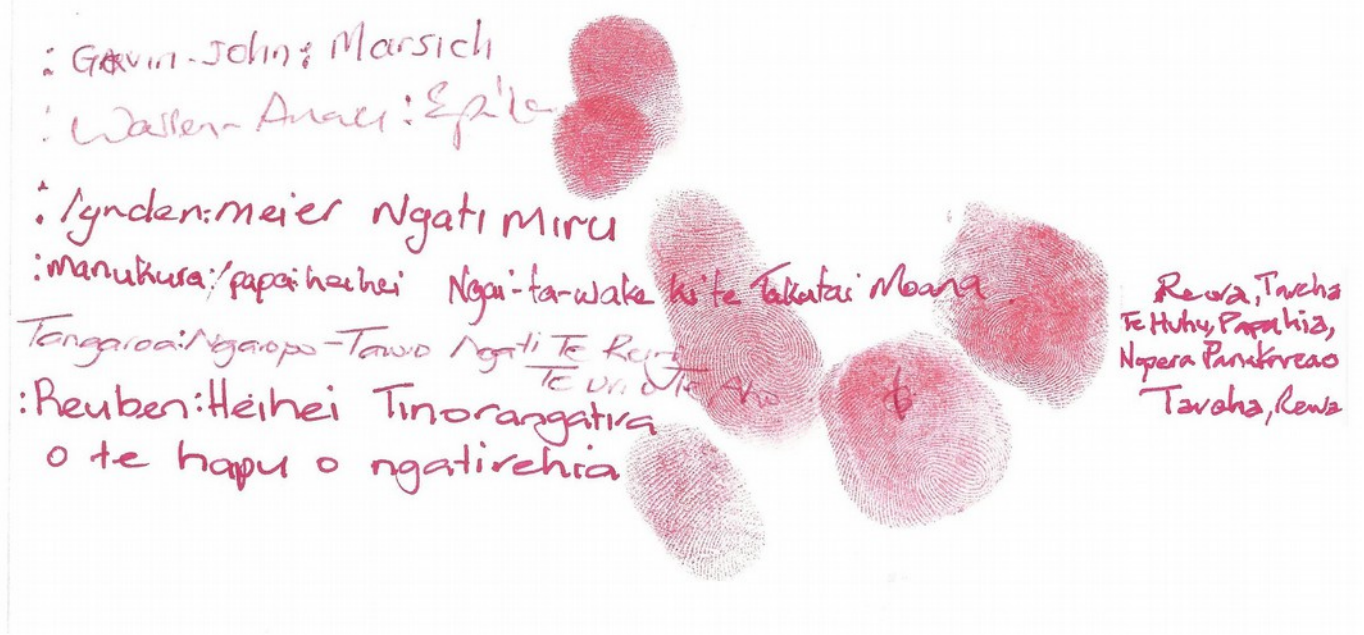 : Gavin-John: Marsich
: Warren- : 
: lynden:meier Ngati Miru
:manukura:/papa:heihei Ngai-ta-wake ki te Takutai Moana.
Tangaroa:Ngaropo-Tawio Ngati Te
Te uri o Te Aho
:Reuben:Heihei Tinorangatira
o te hapu o ngatirehia
Rewa, Tareha
Te Huhu, Papahia,
Nopera Panakareao
Tareha, Rewa